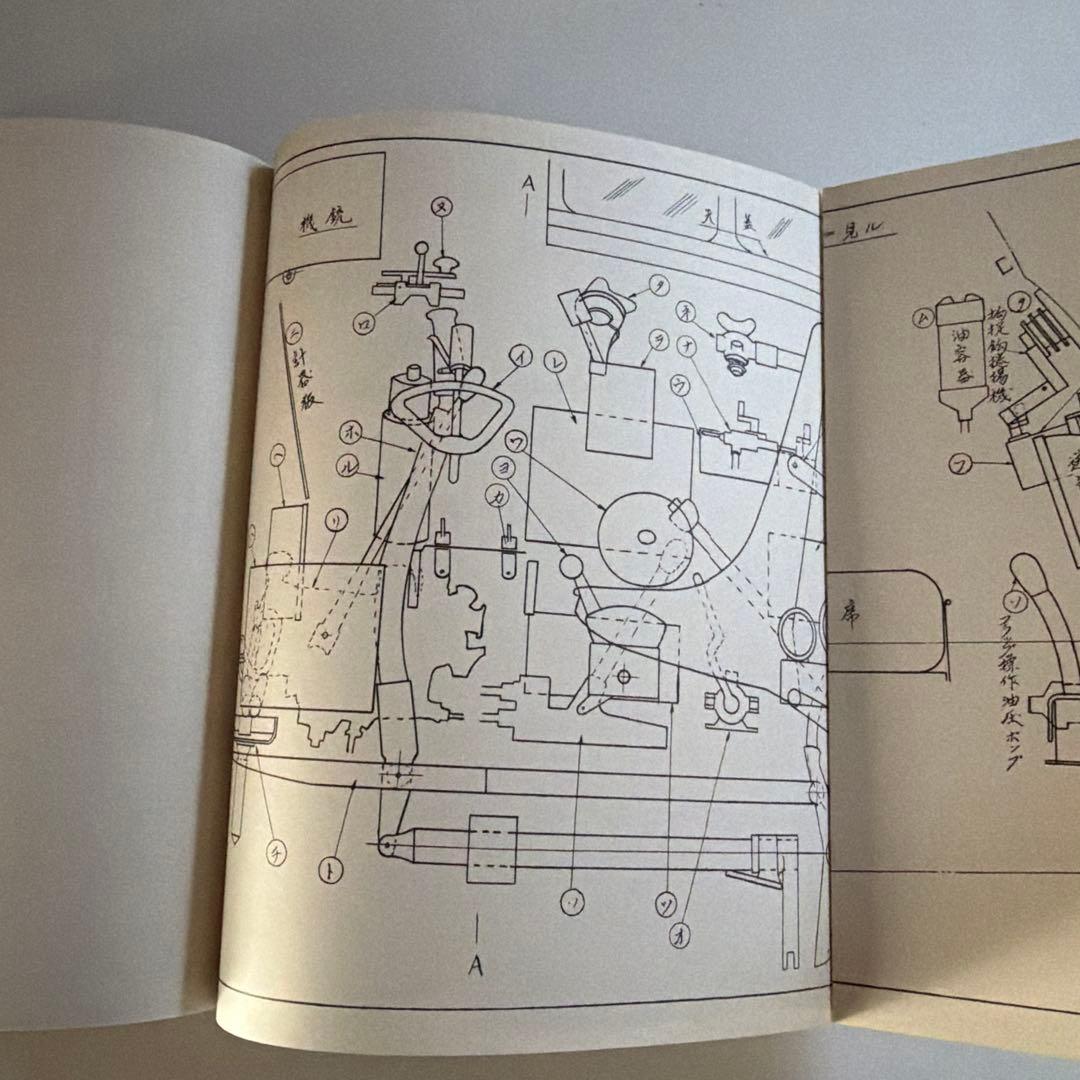 機銃
ヌ
A
天蓋
ロ
ニ
計器板
イ
レ
タ
ラ
ネ
ナ
ウ
ホ
ル
ワ
ヨ
カ
ヘ
リ
チ
ト
ツ
オ
A
一見ル
ム
油容器
ク
フ
席
ソ
フラップ操作油圧ポンプ